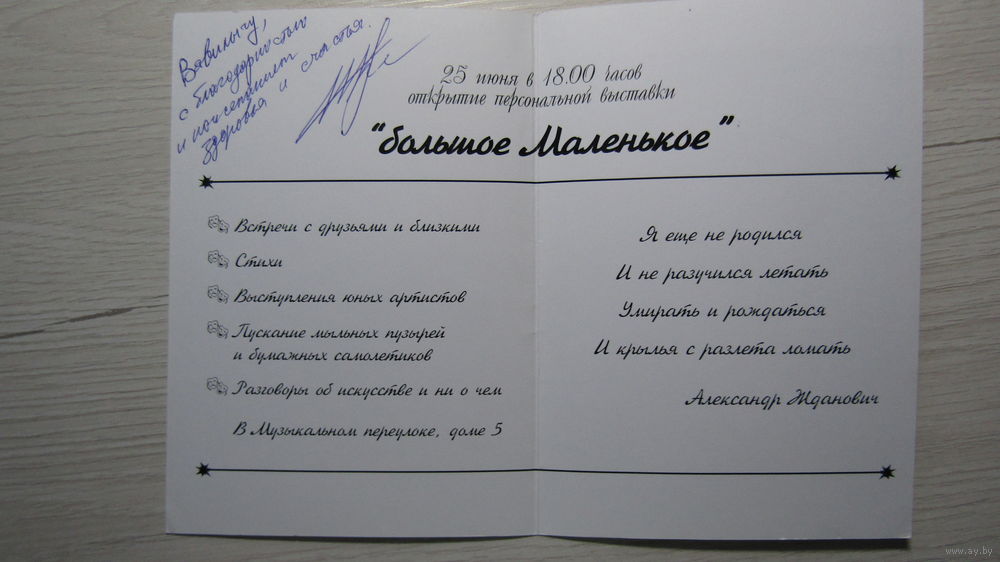 Вавилычу,
с благодарностью
и пожеланием
здоровья и счастья.
25 июня в 18.00 часов
открытие персональной выставки
"большое Маленькое"
Встречи с друзьями и близкими
Стихи
Выступления юных артистов
Пускание мыльных пузырей
и бумажных самолетиков
Разговоры об искусстве и ни о чем
В Музыкальном переулоке, доме 5
Я еще не родился
И не разучился летать
Умирать и рождаться
И крылья с разлета ломать
Александр Жданович
www.ay.by